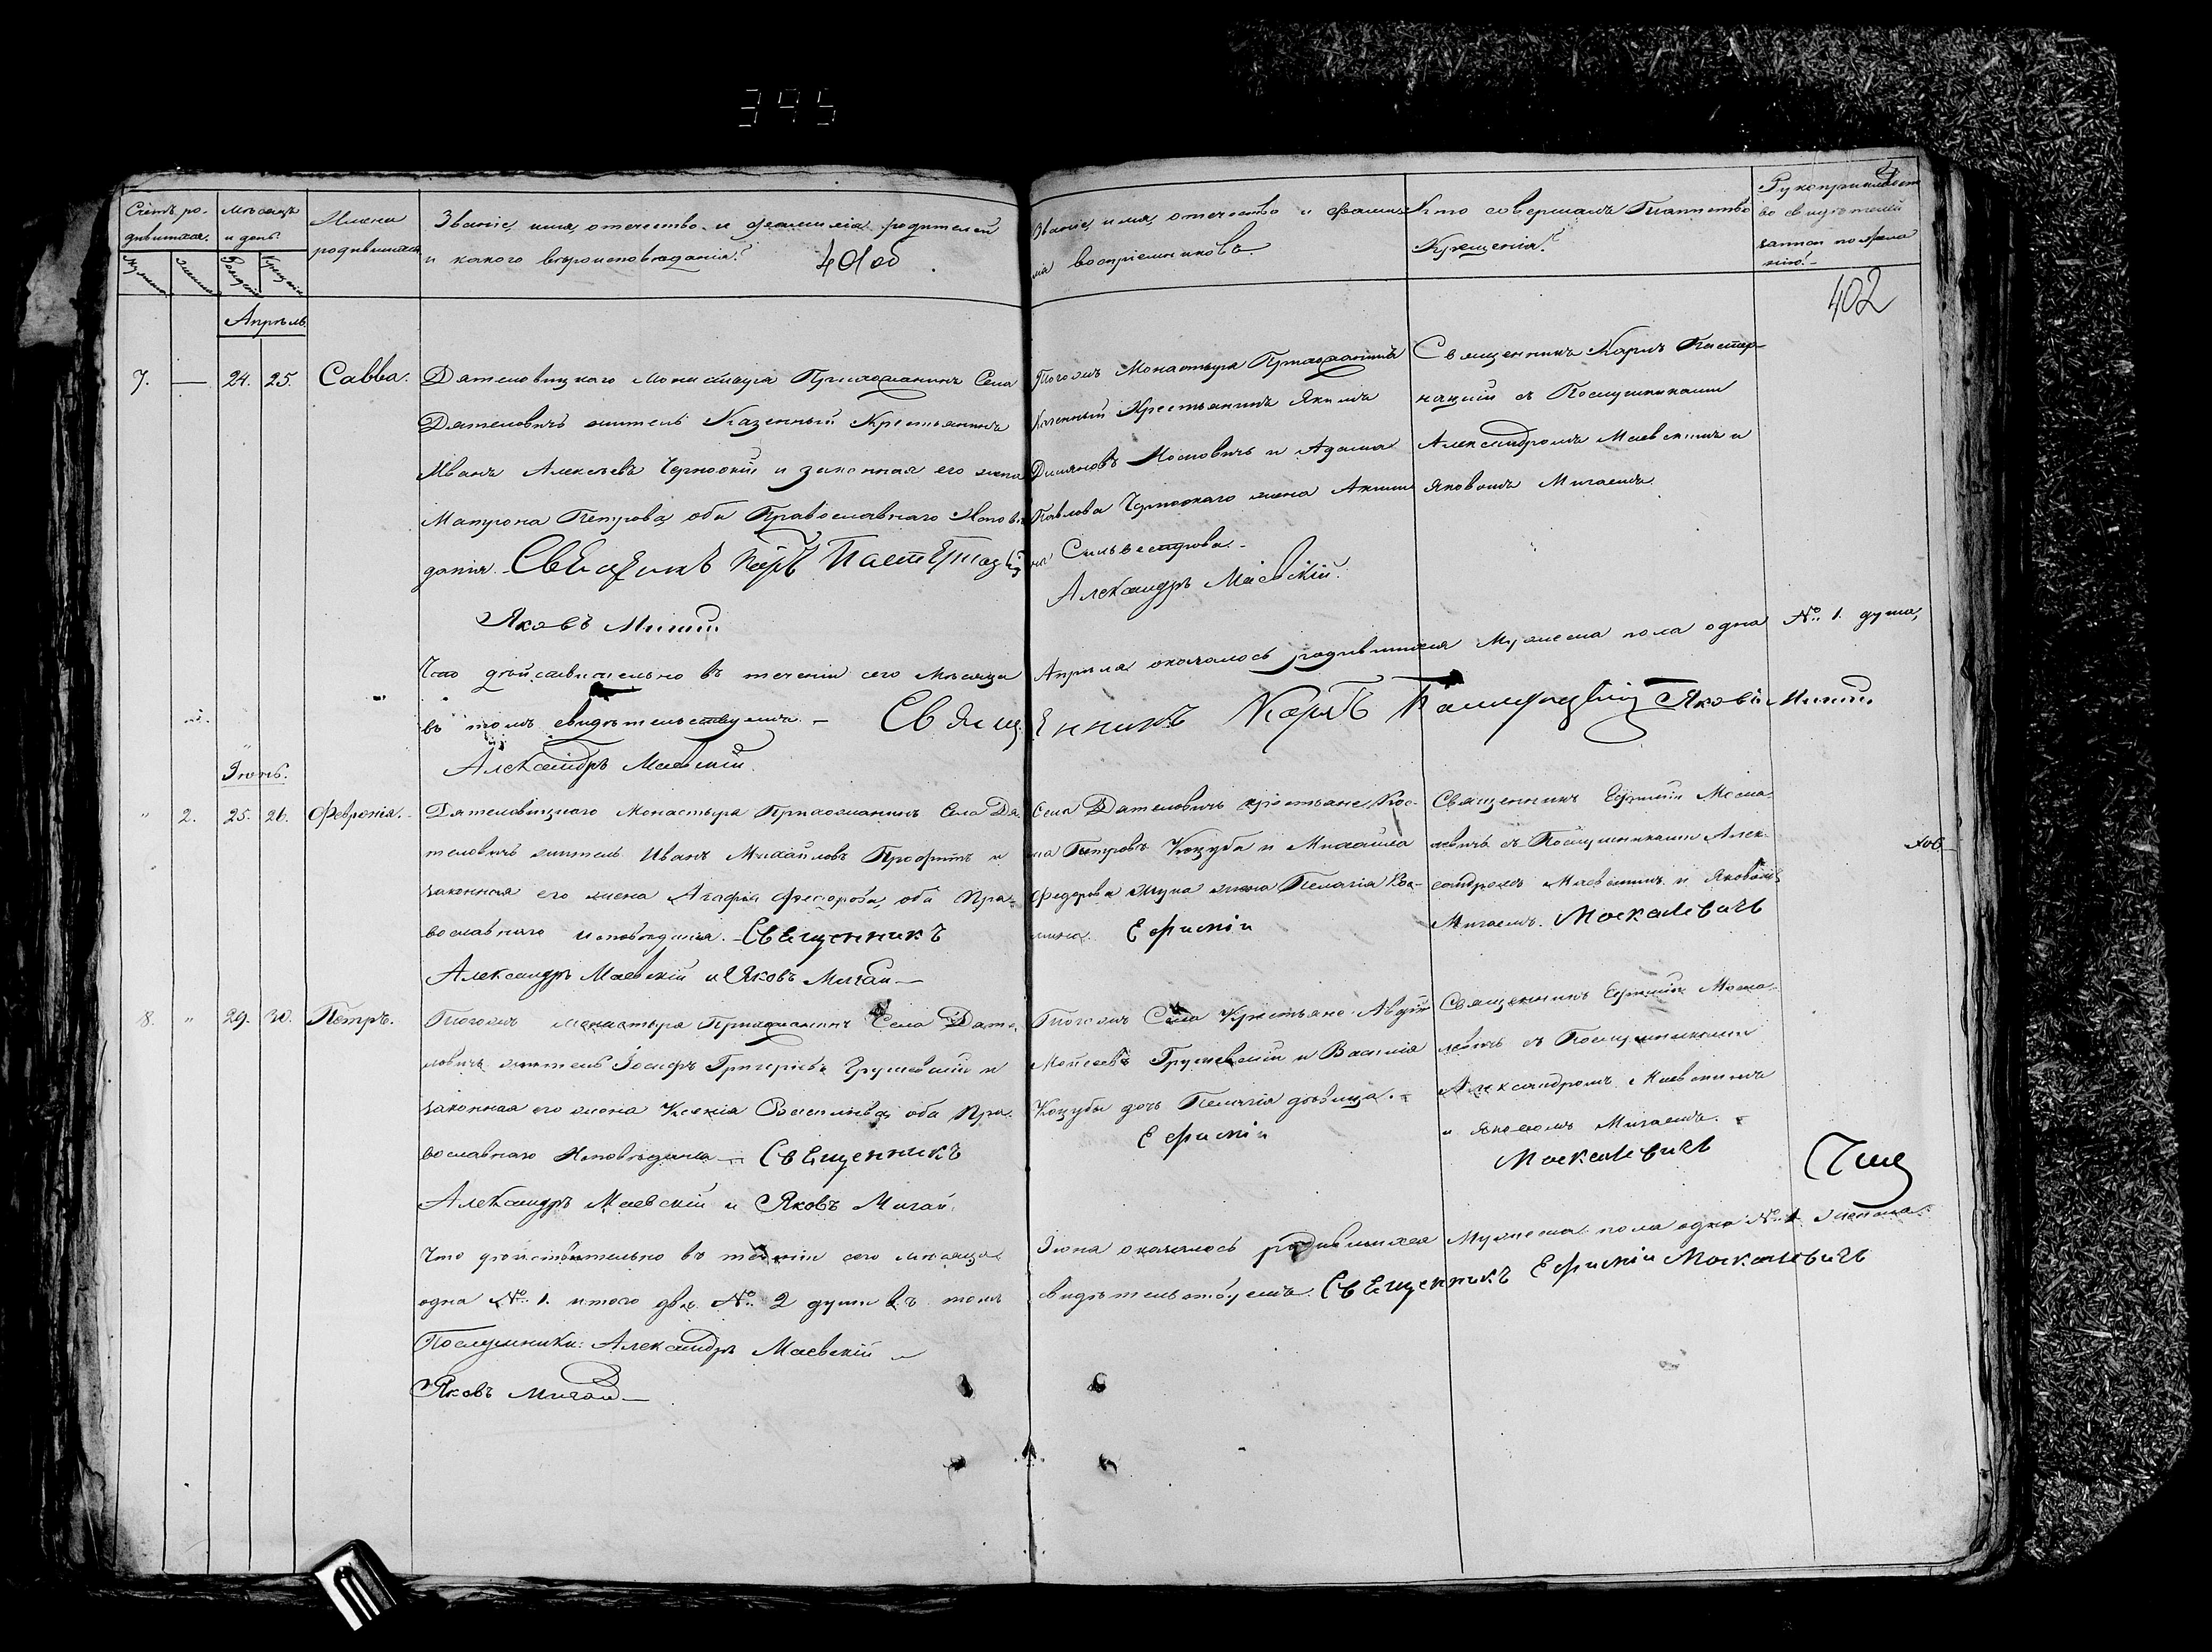 395
Счетъ ро-
дившихся.
Мѣсяцъ
и день.
Имена
родившихся
Званіе, имя, отечество и фамилія родителей
и какого вѣроисповѣданія?
401 об
Званіе, имя, отечество и фами-
лія воспріемниковъ.
Кто совершалъ Таинство
Крещенія?
Рукоприкладст
во свидѣтелей
записи по жела
нію.
402
Апрѣль
7. — 24. 25. Савва.
Дятеловицкаго Монастыря Прихожанинъ Села
Дятеловичъ житель Казенный Крестьянинъ
Иванъ Алексѣевъ Черноокій и законная его жена
Матрона Петрова, оба Православнаго Исповѣ-
данія.
Яковъ Мигай
Тогожъ Монастыря Прихожанинъ
Казенный Крестьянинъ Якимъ
Павлова Чернокаго жена Акили-
на Сильвестрова.
Александръ Маевскій.
Священникъ Карпъ
съ Послушниками
Александромъ Маевскимъ и
Яковомъ Мигаемъ
Что дѣйствительно въ теченіи сего Мѣсяца Апрѣля оказалось родившихся Мужеска пола одна № 1. душа,
въ томъ свидѣтельствуемъ. — Священникъ Карпъ Яковъ Мигай
Александръ Маевскій.
Іюнь.
" 2. 25. 26. Февронія.
Дятеловицкаго Монастыря Прихожанинъ Села Дя-
теловичъ житель Иванъ Михайловъ и
законная его жена Агафія Федорова, оба Пра-
вославнаго исповѣданія. Свещенникъ
Александръ Маевскій и Яковъ Мигай —
Села Дятеловичъ крестьяне, Кос-
ма Петровъ Коцуба и Михаила
Федорова жена Пелагія Кос-
мина. Ефимій
Священникъ Ефимій Моска-
левичъ съ Послушниками Алек-
сандромъ Маевскимъ и Яковомъ
Мигаемъ. Москалевичь
8. " 29. 30. Петръ.
Тогожъ монастыря Прихожанинъ Села Дяте-
ловичъ житель Іосифъ Григоріевъ Грушевскій и
законная его жена Ксенія Васильева, оба Пра-
вославнаго Исповѣданія — Свещенникъ
Александръ Маевскій и Яковъ Мигай.
Тогожъ Села Крестьяне Авдій
Мойсеевъ Грушевскій и Василія
Коцубы дочь Пелагія дѣвица. —
Ефимій
Священникъ Ефимій Моска-
левичъ съ Послушниками
Александромъ Маевскимъ
и Яковомъ Мигаемъ. —
Москалевичь
Что дѣйствительно въ теченіи сего мѣсяца Іюня оказалось родившихся Мужеска пола одна № 1 Женска
одна № 1. итого двѣ № 2 души въ томъ свидѣтельствуемъ. Свещенникъ Ефимій Москалевичь
Послушники: Александръ Маевскій и
Яковъ Мигай —